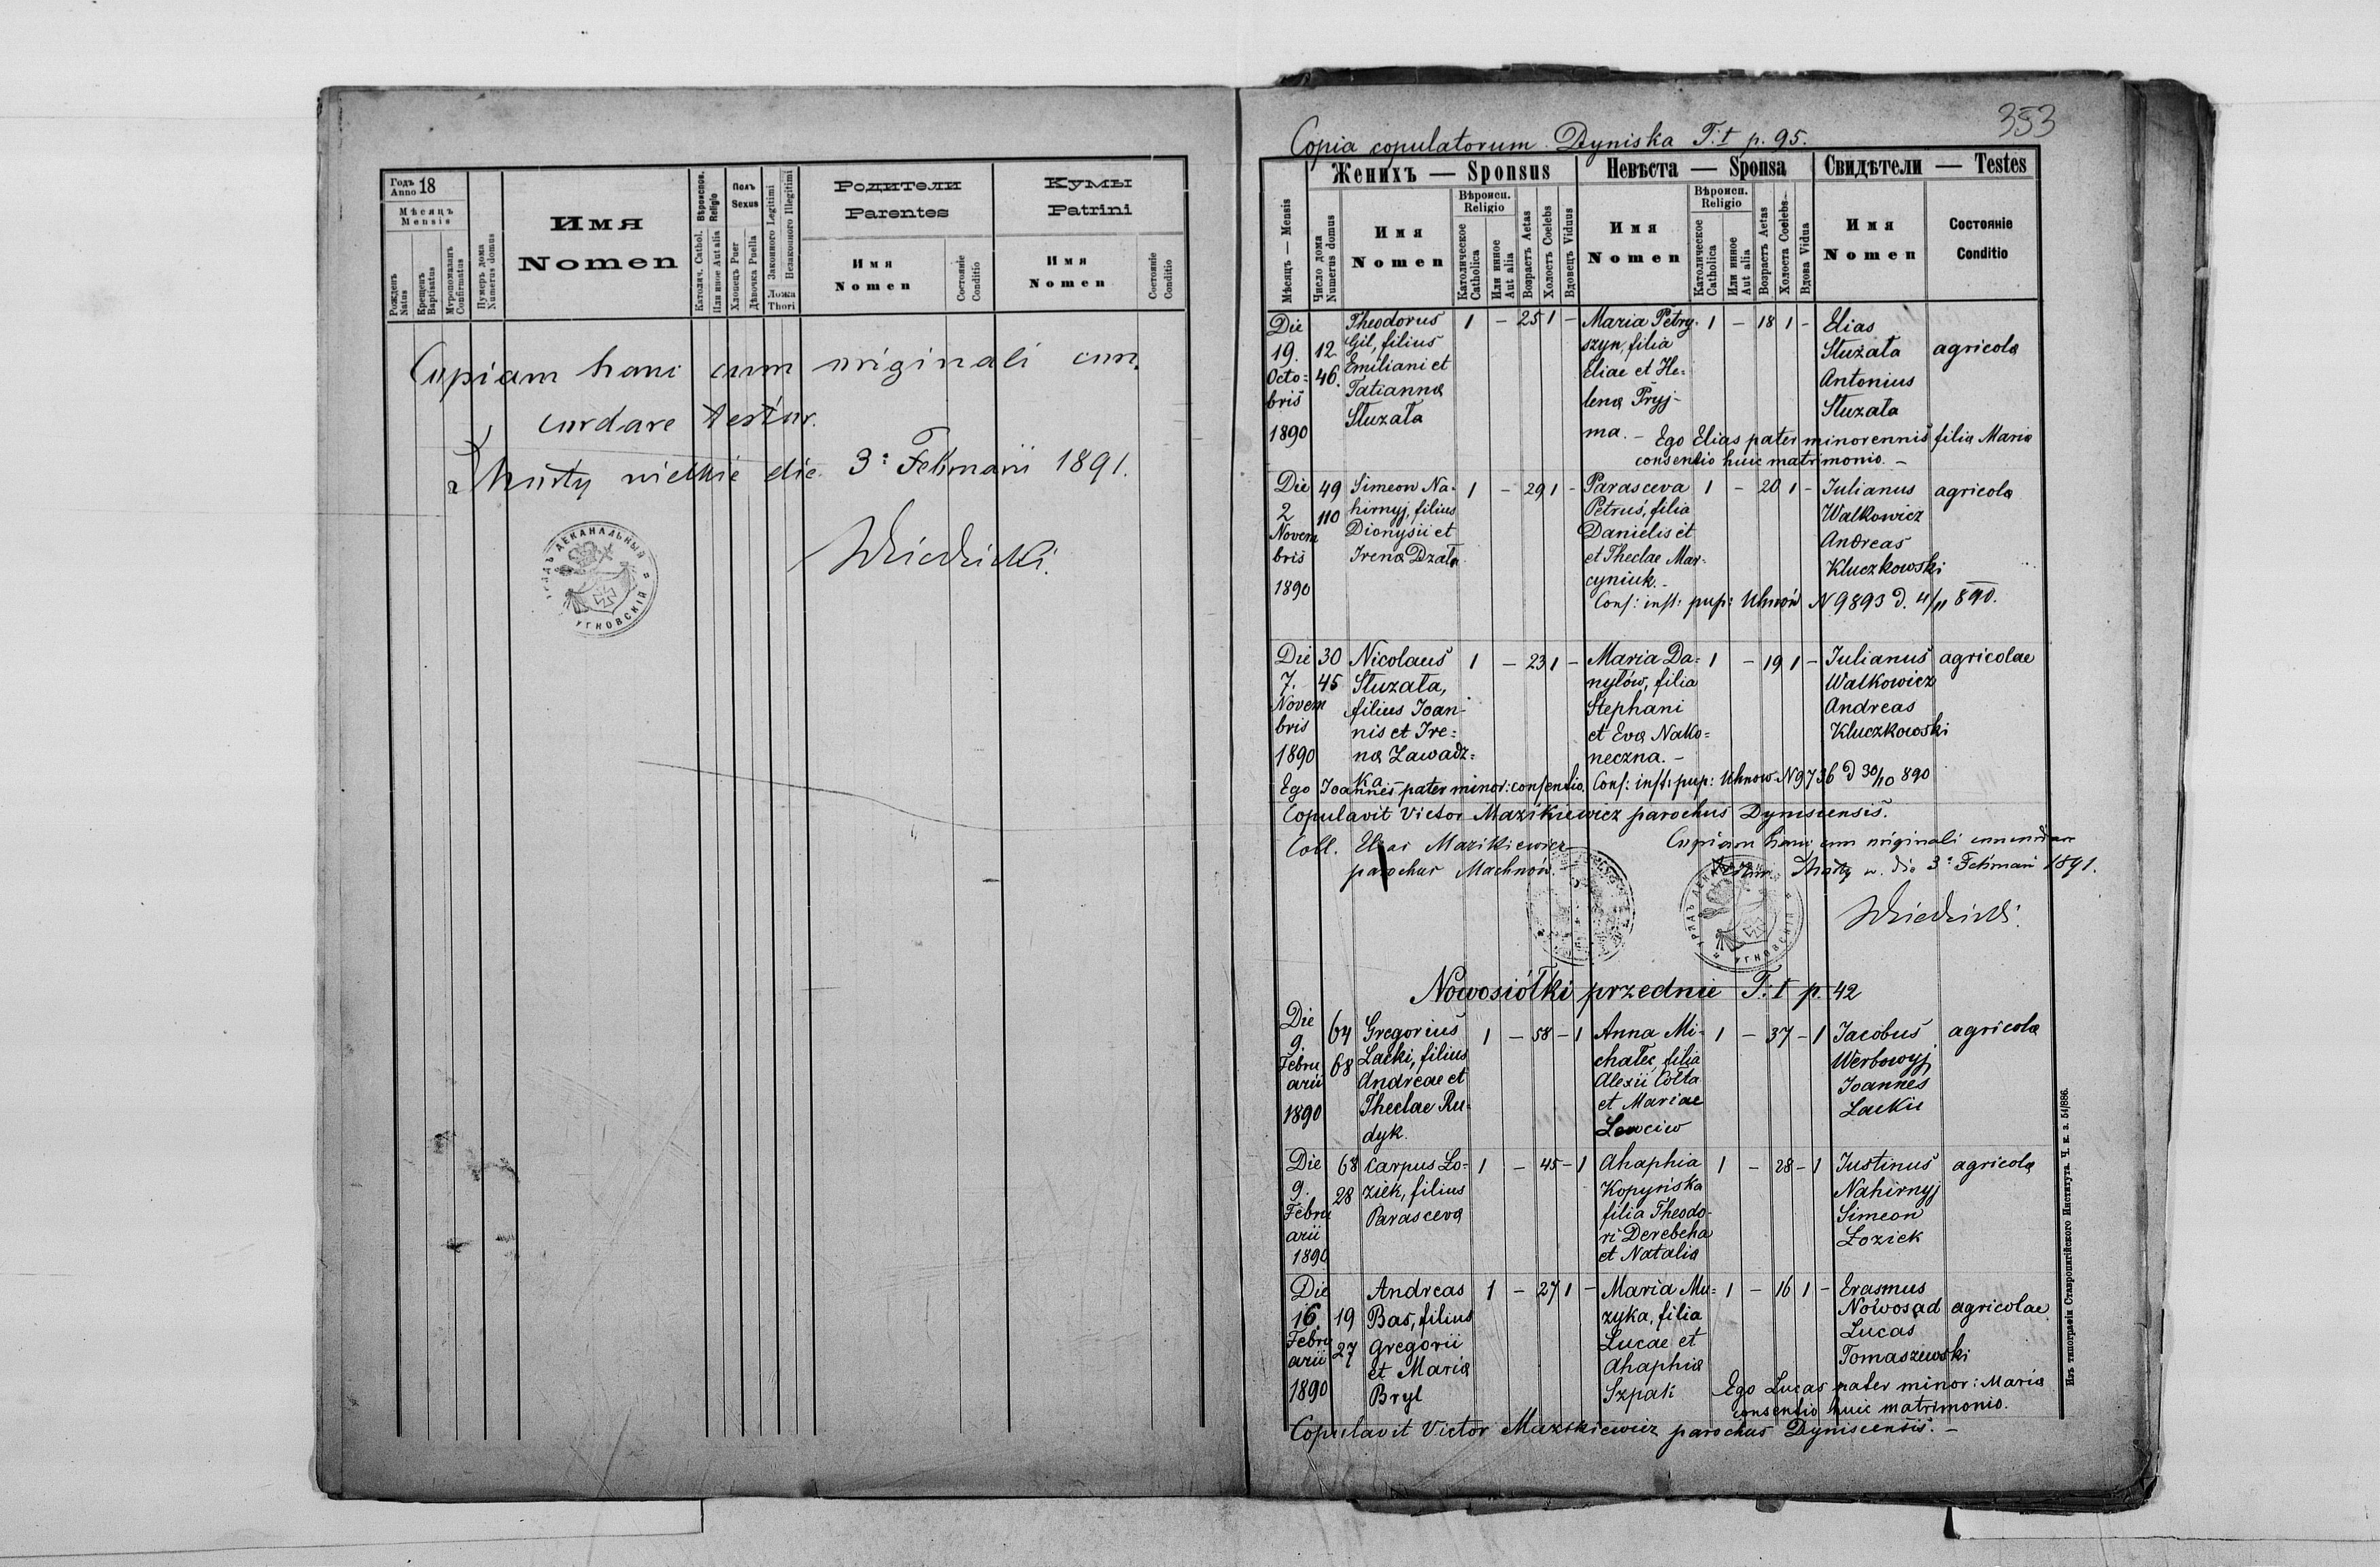 Годъ Anno 18
Мѣсяцъ
Mensis
Рожденъ Natus
Крещенъ Baptisatus
Мѵропомазанъ Confirmatus
Нумеръ дома Numerus domus
Имя
Nomen
Вѣроиспов. Religio
Католич. Cathol.
Или иное Aut alia
Полъ
Sexus
Хлопецъ Puer
Дѣвочка Puella
Законного Legitimi
Незаконного Illegitimi
Ложа
Thori
Родители
Parentes
Имя
Nomen
Состояніе Conditio
Кумы
Patrini
Имя
Nomen
Состояніе Conditio
Copiam hanc cum originali con
cordare testor.
die 3: Februarii 1891.
353
Copia copulatorum Dyniska T: I p. 95.
Мѣсяцъ — Mensis
Число дома Numerus domus
Женихъ — Sponsus
Имя
Nomen
Вѣроисп.
Religio
Католическое Catholica
Или инное Aut alia
Возрастъ Aetas
Холостъ Coelebs
Вдовецъ Viduus
Невѣста — Sponsa
Имя
Nomen
Вѣроисп.
Religio
Католическое Catholica
Или инное Aut alia
Возрастъ Aetas
Холоста Coelebs
Вдова Vidua
Свидѣтели — Testes
Имя
Nomen
Состояніе
Conditio
Die 19. Octo=bris 1890
12
46.
Theodorus
Gil, filius
Emiliani et
Tatianna
Słuzała
1 — 25 1 —
Maria Petry-
szyn, filia
Eliae et He=
lena Pryj-
ma. —
1 — 18 1 —
Elias
Słuzała agricola
Antonius
Słuzała
Ego Elias pater minorennis filia Maria
consentio huic matrimonio. —
Die 2 Novembris 1890
49
110
Simeon Na-
hirnyj, filius
Dionysii et
Irena Dzała
1 — 29 1 —
Parasceva
Petruś, filia
Danielis et
et Theclae Mar-
cyniuk. —
1 — 20 1 —
Iulianus agricola
Walkowicz
Andreas
Kluczkowski
Conf: inst: pup: Uhnów N 9893 d. 4/11 890.
Die 7. Novembris 1890
30
45
Nicolaus
Słuzała,
filius Joan-
nis et Ire=
na Zawadz=
ka —
1 — 23 1 —
Maria Da=
nyłów, filia
Stephani
et Eva Nako=
neczna. —
1 — 19 1 —
Iulianus agricolae
Walkowicz
Andreas
Kluczkowski
Ego Joannes pater minor: consentio. Conf: inst: pup: Uhnow N 9736 d 30/10 890
Copulavit Victor Mazikiewicz parochus Dyniscensis.
Coll. Elias Mazikiewicz
parochus Machnów.
Copiam hanc cum originali concordare
testor. die 3: Februarii 1891.
Nowosiółki przednie T: I p. 42
Die 9. Februarii 1890
64
68
Gregorius
Lacki, filius
Andreae et
Theclae Ru-
dyk.
1 — 58 — 1
Anna Mi-
chałec, filia
Alexii Cołta
et Mariae
Lewciw
1 — 37 — 1
Jacobus agricola
Werbowyj
Joannes
Lackie
Die 9. Februarii 1890
68
28
Carpus Ło-
ziek, filius
Parasceva
1 — 45 — 1
Ahaphia
Kopyńska
filia Theodo-
ri Derebeha
et Natalia
1 — 28 — 1
Iustinus agricola
Nahirnyj
Simeon
Łoziek
Die 16. Februarii 1890
19
27
Andreas
Bas, filius
Gregorii
et Maria
Bryl
1 — 27 1 —
Maria Mu=
zyka, filia
Lucae et
Ahaphia
Szpak
1 — 16 1 —
Erasmus
Nowosad agricolae
Lucas
Tomaszewski
Ego Lucas pater minor: Maria
consentio huic matrimonio.
Copulavit Victor Mazikiewicz parochus Dyniscensis. —
Изъ типографіи Ставропигійского Института. Ч. к. з. 54/886.